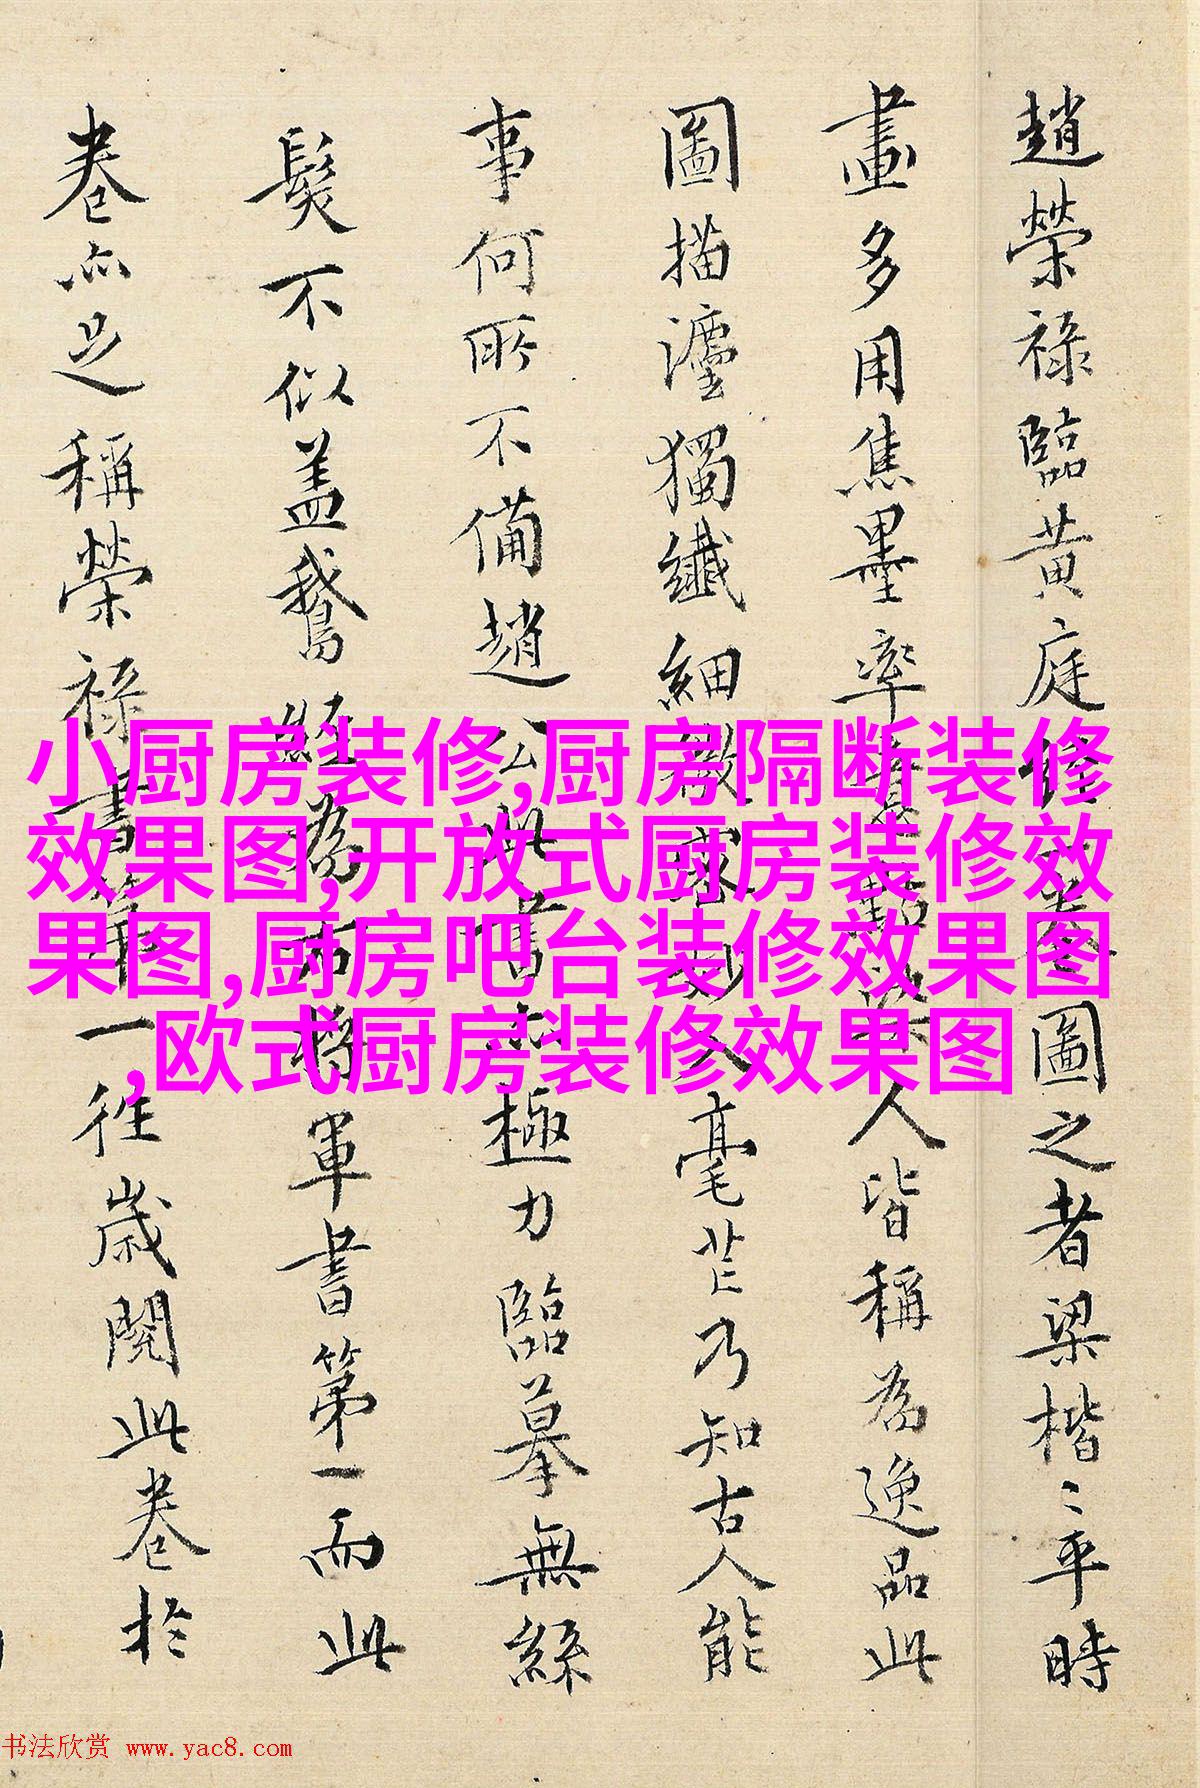 趙榮祿臨黃庭經卷圖之者梁楷〻平時
畫多用焦墨率人皆稱為逸品此
圖描灋獨纖細入毫芒乃知古人能
事何所不備趙公此書亦極力臨摹無絲
髮不似蓋鵝經為右將軍書第一而此
卷亦足稱榮祿書第一往歲閱此卷於
小厨房装修,厨房隔断装修
效果图,开放式厨房装修效
果图,厨房吧台装修效果图
,欧式厨房装修效果图
书法欣赏 www.yac8.com